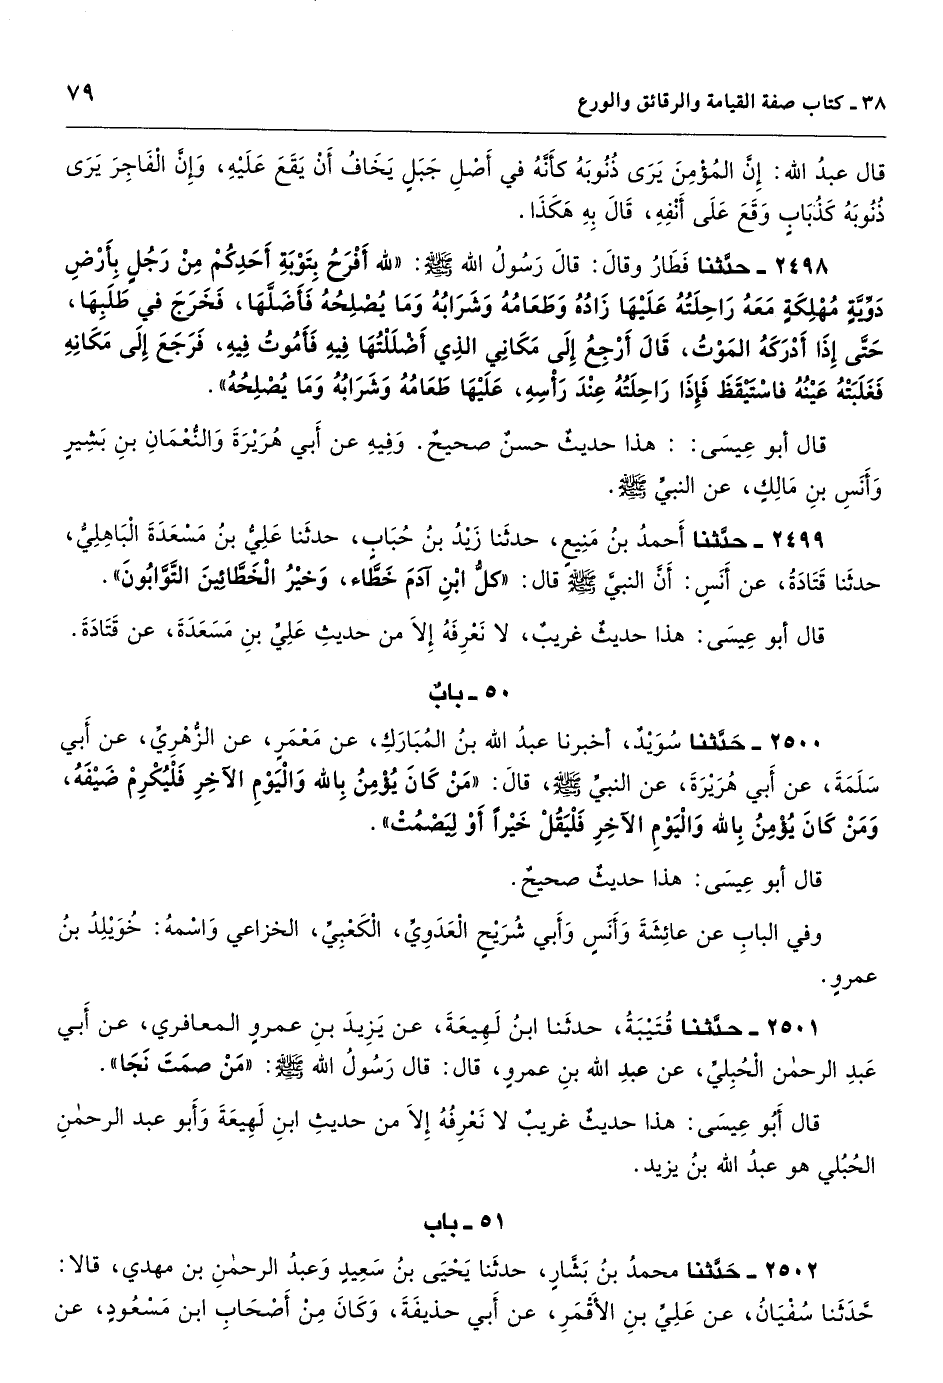 ٣٨ ـ كتاب صفة القيامة والرقائق والورع
٧٩
قال عبدُ الله: إِنَّ المُؤْمِنَ يَرَى ذُنُوبَهُ كأَنَّهُ في أَصْلِ جَبَلٍ يَخَافُ أَنْ يَقَعَ عَلَيْهِ، وَإِنَّ الْفَاجِرَ يَرَى
ذُنُوبَهُ كَذُبَابٍ وَقَعَ عَلَى أَنْفِهِ، قَالَ بِهِ هَكَذَا.
٢٤٩٨ ـ حدَّثنا فَطَارُ وقالَ: قالَ رَسُولُ الله ﷺ: «لله أَفْرَحُ بِتَوْبَةِ أَحَدِكُمْ مِنْ رَجُلٍ بِأَرْضِ
دَوِّيَّةٍ مُهْلِكَةٍ مَعَهُ رَاحِلَتُهُ عَلَيْهَا زَادُهُ وَطَعَامُهُ وَشَرَابُهُ وَمَا يُصْلِحُهُ فَأَضَلَّهَا، فَخَرَجَ في طَلَبِهَا،
حَتَّى إِذَا أَدْرَكَهُ المَوْتُ، قَالَ أَرْجِعُ إِلَى مَكَانِي الذي أَضْلَلْتُهَا فِيهِ فَأَمُوتُ فِيهِ، فَرَجَعَ إِلَى مَكَانِهِ
فَغَلَبَتْهُ عَيْنُهُ فاسْتَيْقَظَ فَإِذَا رَاحِلَتُهُ عِنْدَ رَأْسِهِ، عَلَيْهَا طَعَامُهُ وَشَرَابُهُ وَمَا يُصْلِحُهُ».
قال أبو عِيسَى: : هذا حديثٌ حسنٌ صحيحٌ. وَفِيهِ عن أَبي هُرَيْرَةَ وَالنُّعْمَانِ بنِ بَشِيرٍ
وَأَنَسِ بنِ مَالِكٍ، عن النبيِّ ﷺ.
٢٤٩٩ ـ حدَّثنا أَحمدُ بنُ مَنِيعٍ، حدثَنا زَيْدُ بنُ حُبَابٍ، حدثَنا عَلِيُّ بنُ مَسْعَدَةَ الْبَاهِلِيُّ،
حدثَنا قَتَادَةُ، عن أَنَسٍ: أَنَّ النبيَّ ﷺ قال: «كلُّ ابْنِ آدَمَ خَطَّاء، وَخيْرُ الْخَطَّائِينَ التَّوَّابُونَ».
قال أبو عِيسَى: هذا حديثٌ غريبٌ، لا نَعْرِفَهُ إِلاَ من حديثِ عَلِيِّ بنِ مَسَعَدَةَ، عن قَتَادَةَ.
٥٠ ـ بابٌ
٢٥٠٠ ـ حَدَّثنا سُوَيْدٌ، أخبرنا عبدُ الله بنُ المُبَارَكِ، عن مَعْمَرٍ، عن الزُّهْرِيِّ، عن أَبي
سَلَمَةَ، عن أَبي هُرَيْرَةَ، عن النبيِّ ﷺ، قالَ: «مَنْ كَانَ يُؤْمِنُ بِالله وَالْيَوْمِ الآخِرِ فَلْيُكْرِمْ ضَيْفَهُ،
وَمَنْ كَانَ يُؤْمِنُ بِالله وَالْيَوْمِ الآخِرِ فَلْيَقُلْ خَيْراً أَوْ لِيَصْمُتْ».
قال أبو عِيسَى: هذا حديثٌ صحيحٌ.
وفي البابِ عن عائِشَةَ وَأَنَسٍ وَأَبي شُرَيْحٍ الْعَدَوِيِّ، الْكَعْبِيِّ، الخزاعي وَاسْمهُ: خُوَيْلِدُ بنُ
عمروٍ.
٢٥٠١ ـ حدَّثنا قُتَيْبَةُ، حدثَنا ابنُ لَهِيعَةَ، عن يَزِيدَ بنِ عمروٍ المعافري، عن أَبي
عَبدِ الرحمٰن الْحُبِليِّ، عن عبدِ الله بنِ عمروٍ، قال: قال رَسُولُ الله ﷺ: «مَنْ صمَتَ نَجَا».
قال أَبُو عِيسَى: هذا حديثٌ غريبٌ لا نَعْرِفُهُ إِلاَ من حديثِ ابنِ لَهِيعَةَ وَأبو عبد الرحمٰنِ
الحُبُلي هو عبدُ الله بنُ يزيد.
٥١ ـ باب
٢٥٠٢ ـ حَدَّثنا محمدُ بنُ بَشَّارٍ، حدثَنا يَحْيَى بنُ سَعِيدٍ وَعبدُ الرحمٰنِ بن مهدي، قالا:
حَّدَثَنا سُفْيَانُ، عن عَلِيِّ بنِ الأَقْمَرِ، عن أَبي حذيفَةَ، وَكَانَ مِنْ أَصْحَابِ ابن مَسْعُودٍ، عن